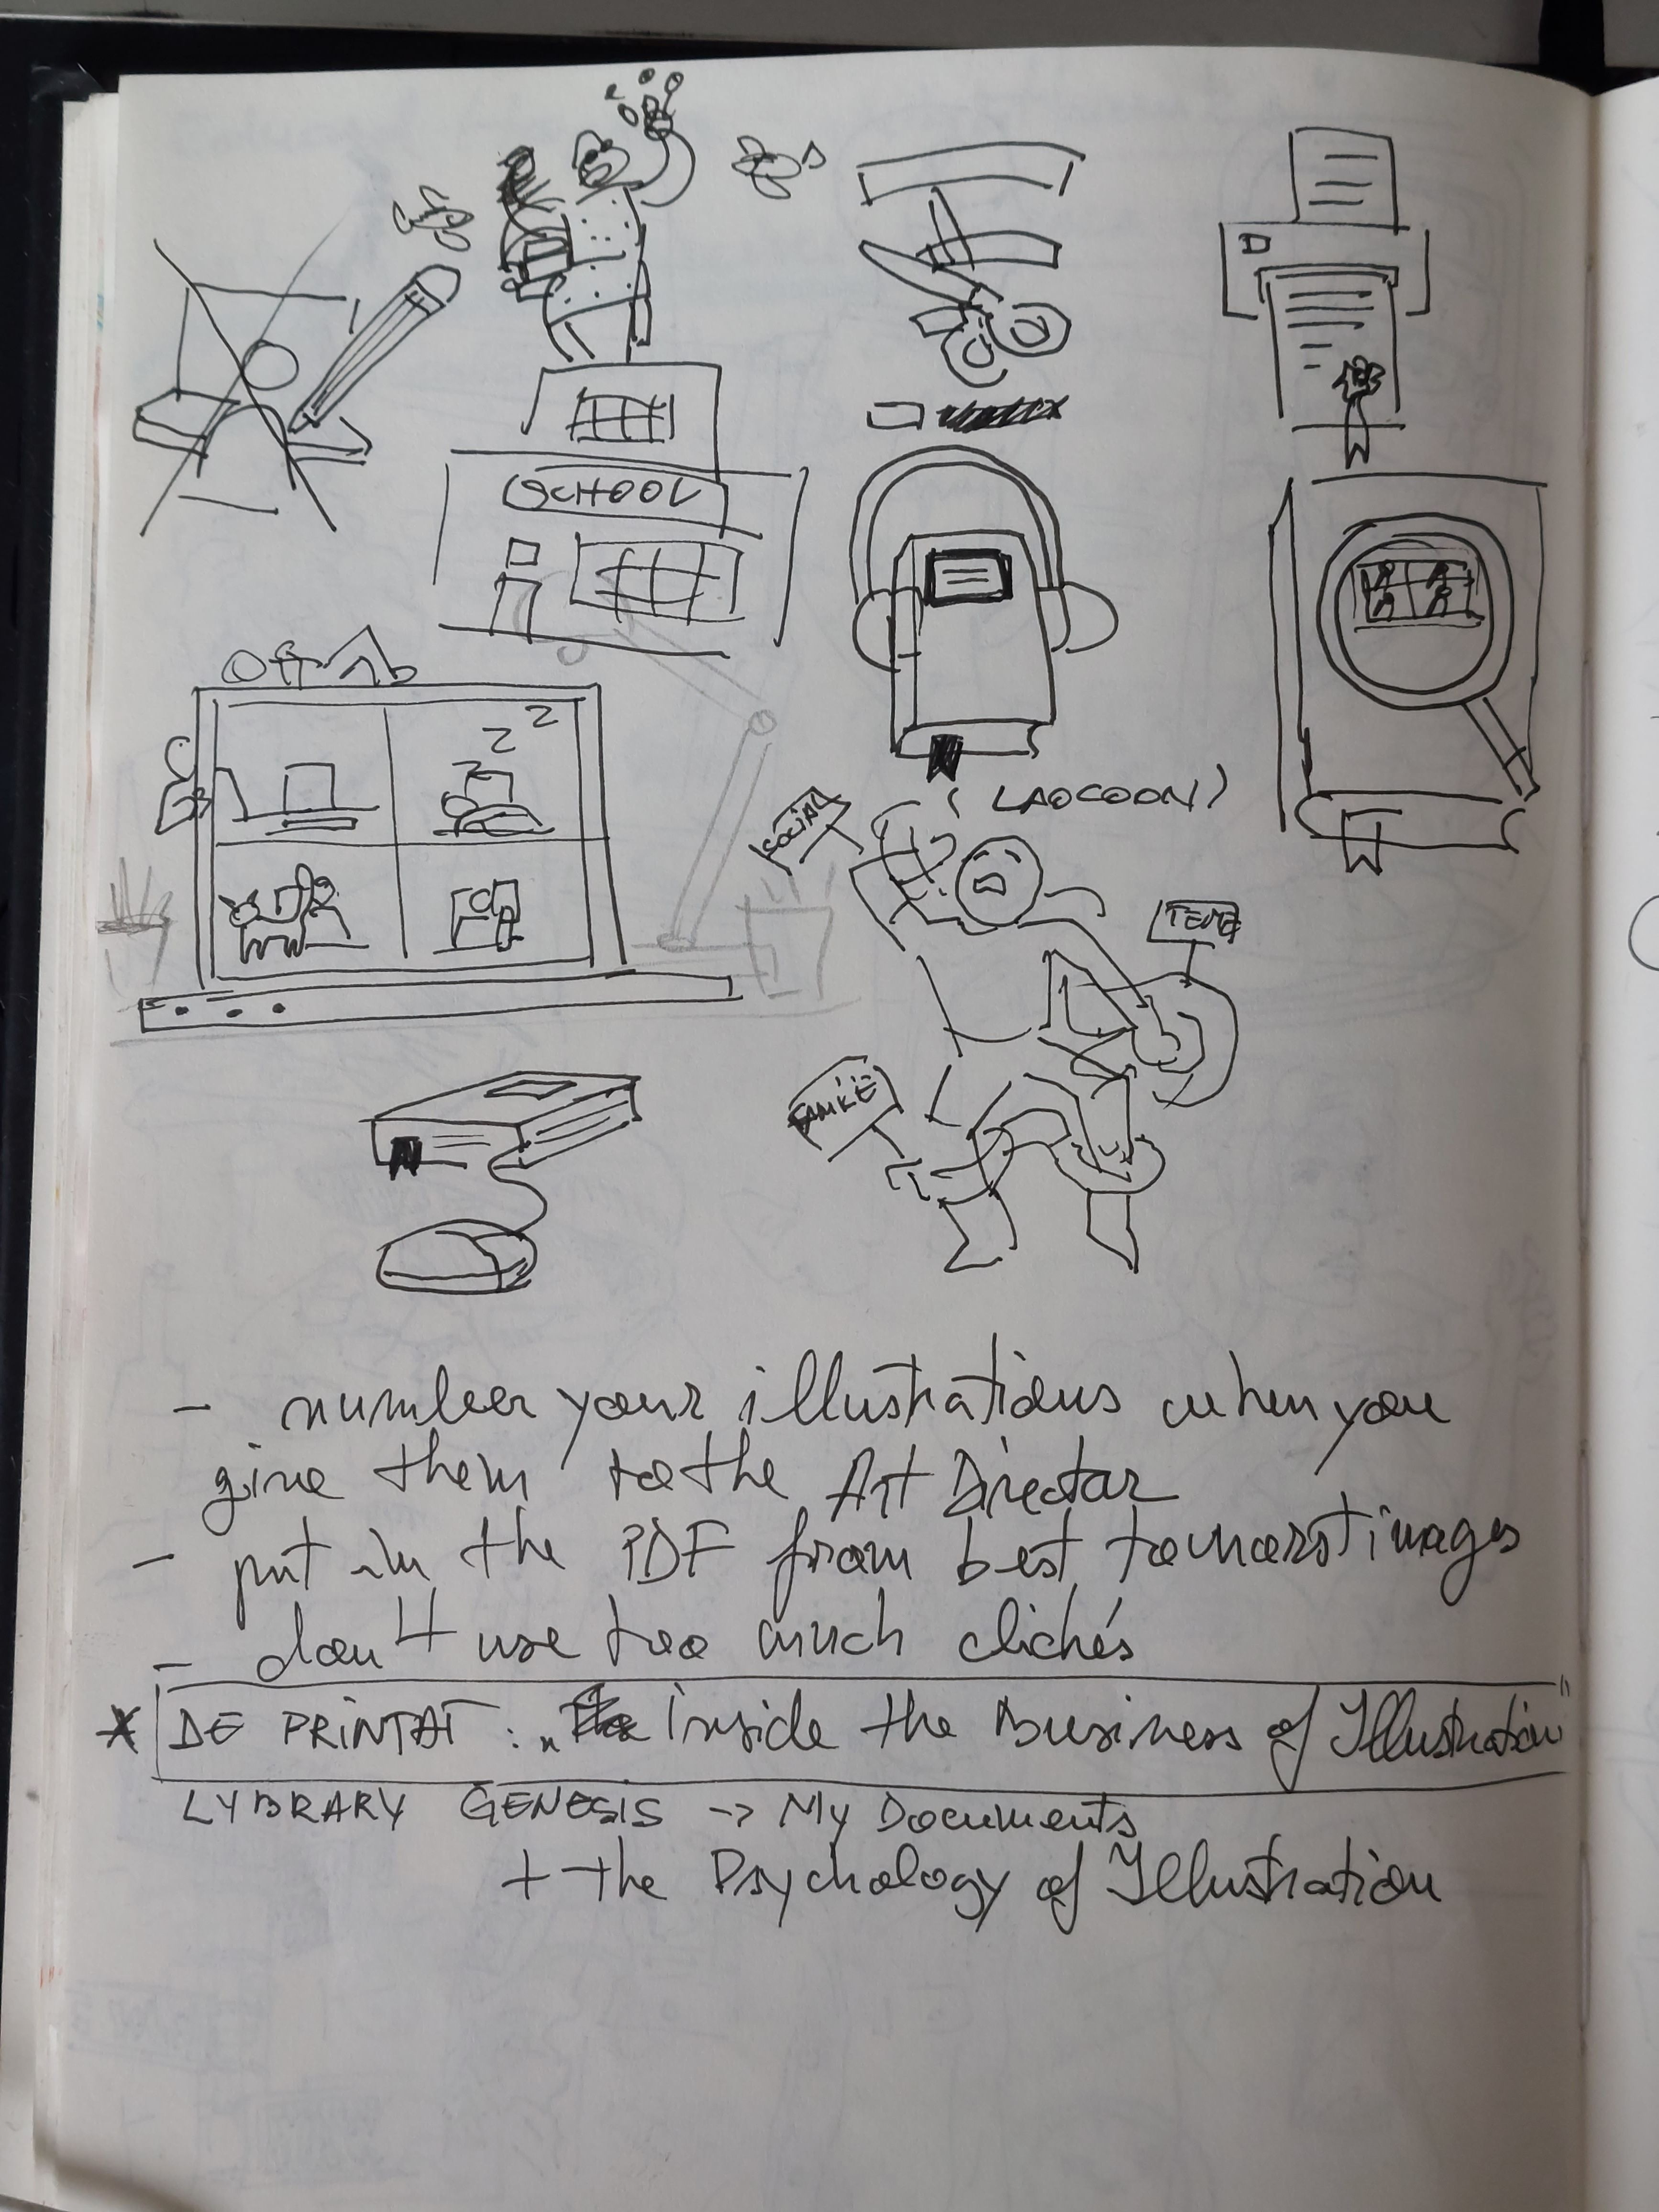 SCHOOL
z z z
(LAOCOON)
SOCIAL
TEME
- number your illustrations when you
give them to the Art Director
- put in the PDF from best to worst images
- don't use too much clichés
* DE PRINTAT: „Inside the Business of Illustration"
LYBRARY GENESIS -> My Documents
+ the Psychology of Illustration